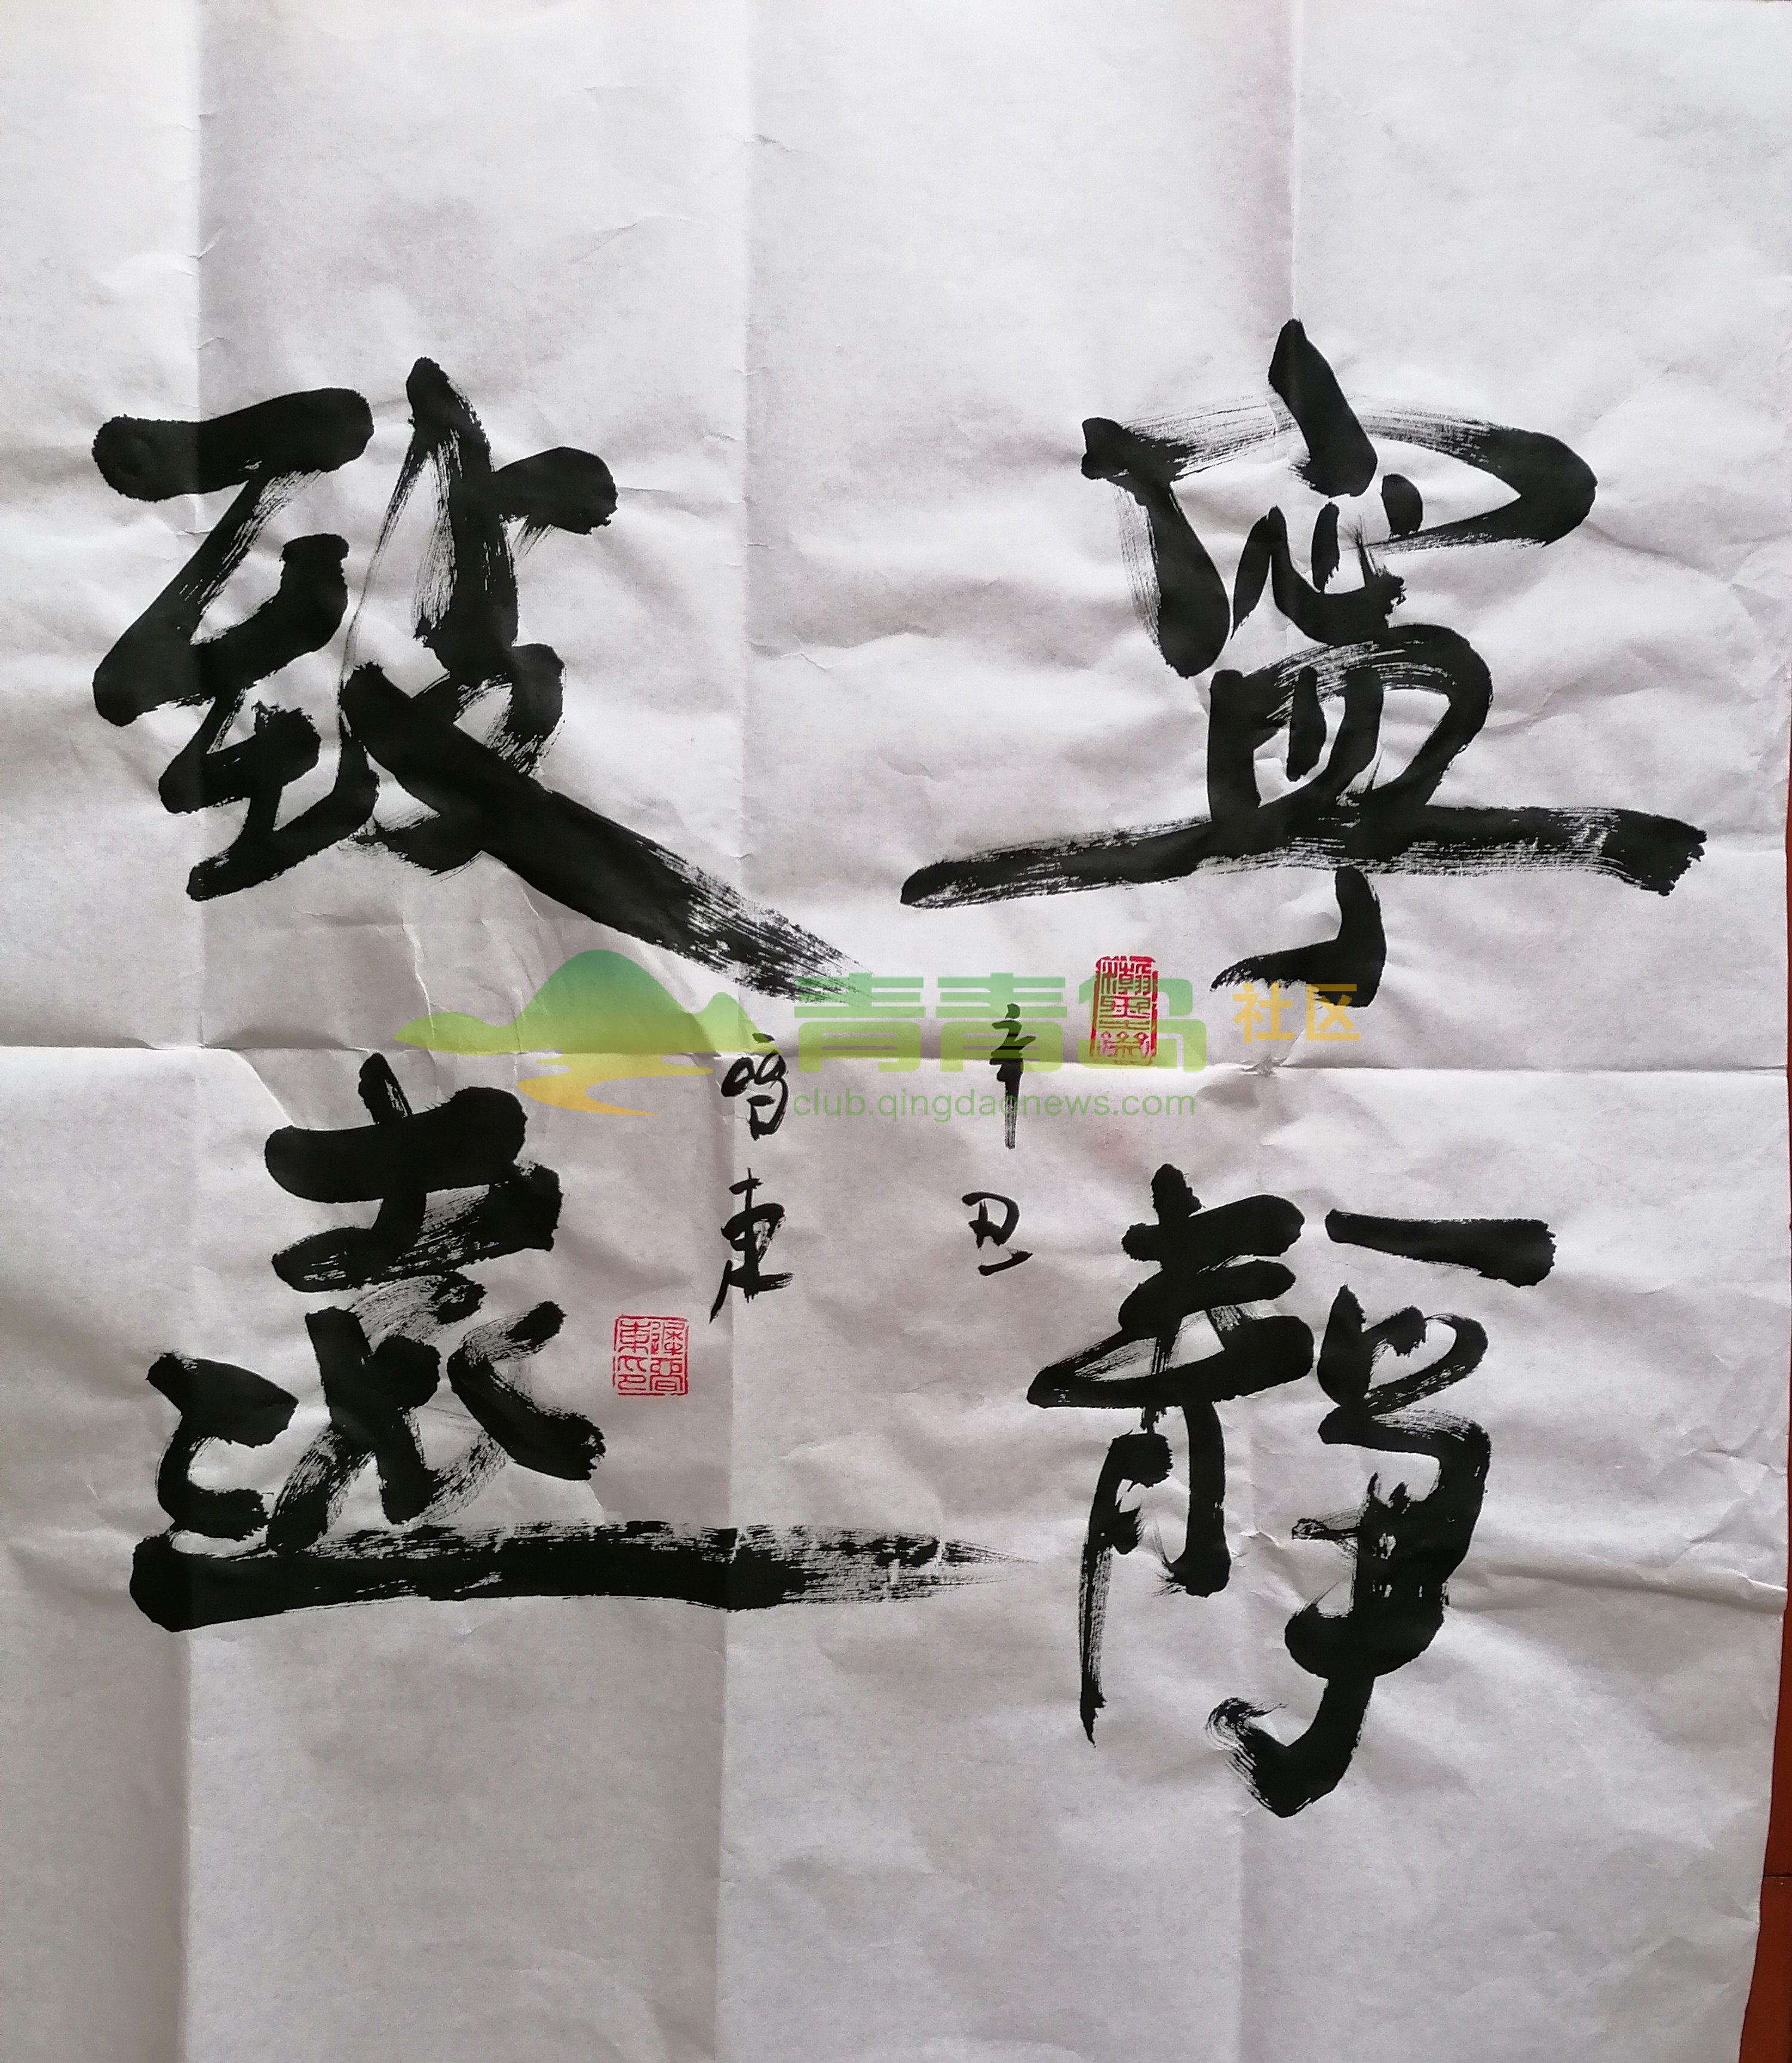 寧靜
致遠
辛丑
晉東
青青岛社区
club.qingdaonews.com